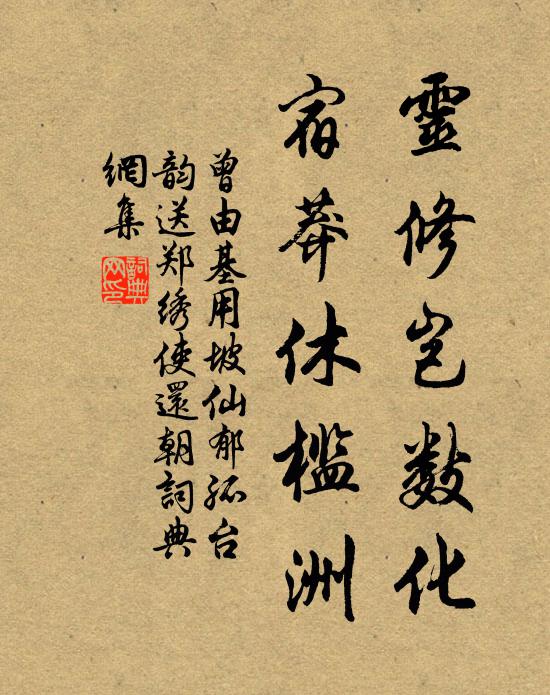 靈修岂數化
宿莽休檻洲
曾由基用坡仙郁孤台
韵送郑绣使還朝詞典
網集
詞典網印